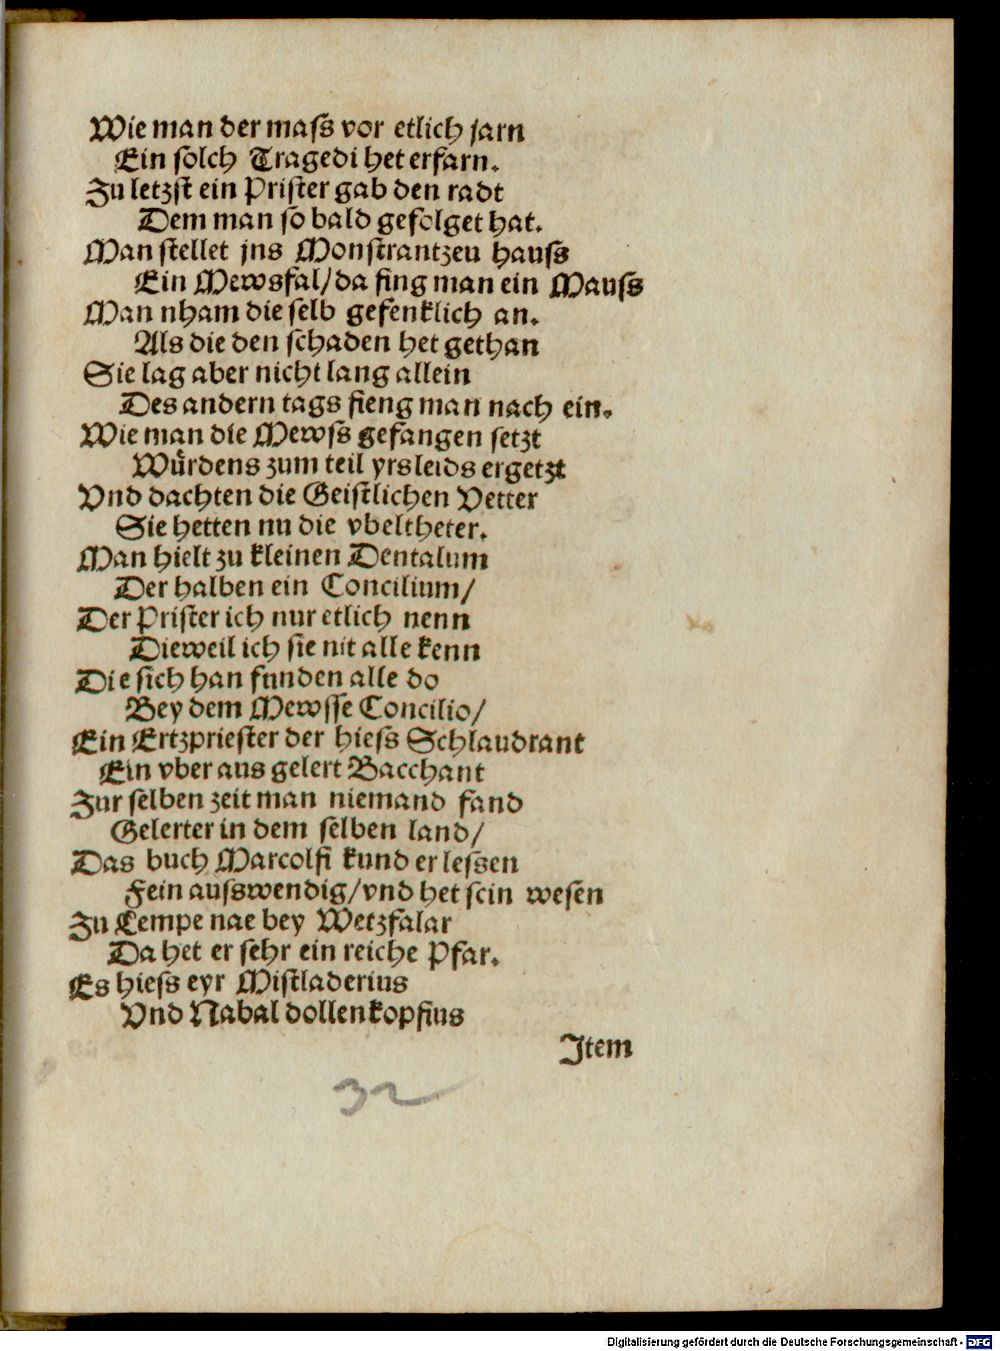 Wie man der mass vor etlich jarn
Ein solch Tragedi het erfarn.
Zu letzst ein Prister gab den radt
Dem man so bald gefolget hat.
Man stellet jns Monstrantzeu hauss
Ein Mewsfal/da fing man ein Mauss
Man nham die selb gefenklich an.
Als die den schaden het gethan
Sie lag aber nicht lang allein
Des andern tags fieng man nach ein.
Wie man die Mewss gefangen setzt
Wuͤrdens zum teil yrs leids ergetzt
Vnd dachten die Geistlichen Vetter
Sie hetten nu die vbeltheter.
Man hielt zu kleinen Dentalum
Der halben ein Concilium/
Der Prister ich nur etlich nenn
Dieweil ich sie nit alle kenn
Die sich han funden alle do
Bey dem Mewsse Concilio/
Ein Ertzpriester der hiess Schlaudrant
Ein vber aus gelert Bacchant
Zur selben zeit man niemand fand
Gelerter in dem selben land/
Das buch Marcolfi kund er lessen
Fein ausswendig/vnd het sein wesen
Zu Tempe nae bey Wetzfalar
Da het er sehr ein reiche Pfar.
Es hiess eyr Mistladerius
Vnd Nabal dollenkopfius
Jtem
32
Digitalisierung gefördert durch die Deutsche Forschungsgemeinschaft - DFG